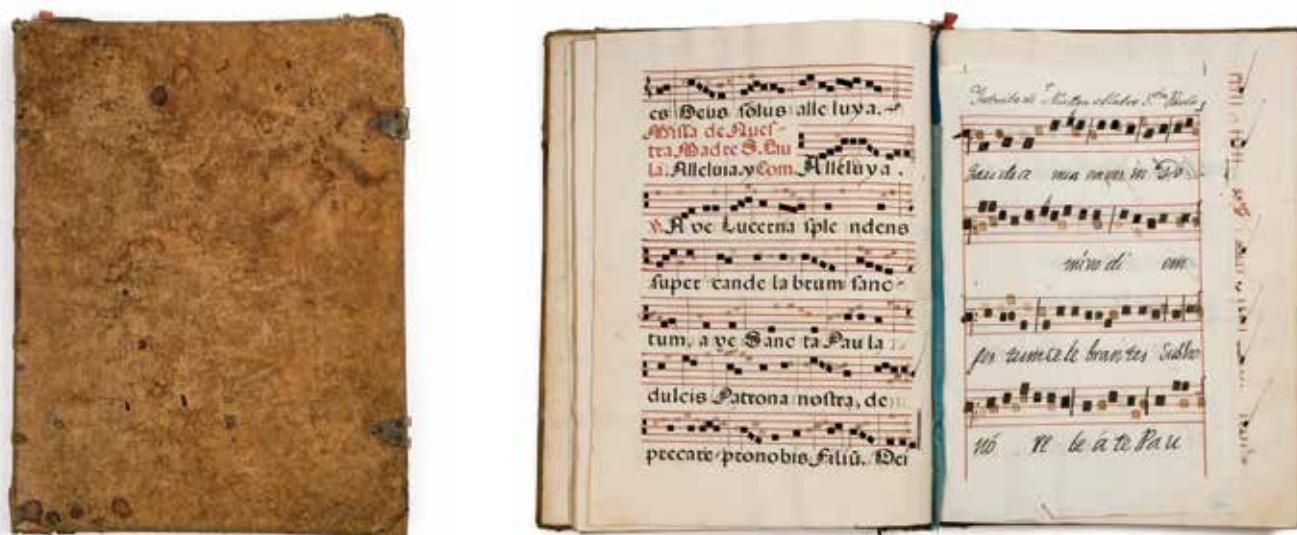 es Deus solus alleluya.
Missa de Nues-
tra Madre S. Pau
la. Alleluia. y Com. Alleluya.
℣. A ve Lucerna sple ndens
super cande la brum sanc-
tum, a ve Sanc ta Pau la
dulcis Patrona nostra, de
precare pronobis Filiũ. Dei
Introito de Nuestra Madre Sta Paula
Gau de a mus omnes in Do
mino di em
fes tum ce le bran tes sub ho
nó re be á te Pau